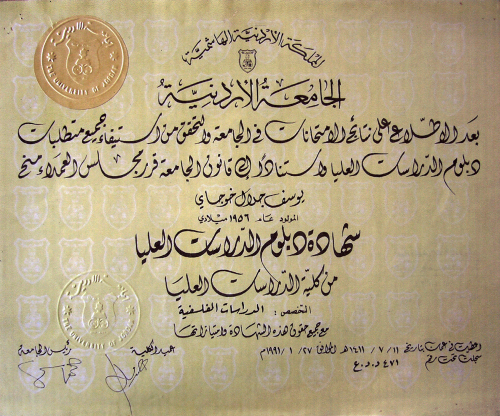 المملكة الأردنية الهاشمية
الجامعة الأردنية
بعد الاطلاع على نتائج الامتحانات في الجامعة والتحقق من استيفاء جميع متطلبات
دبلوم الدراسات العليا واستنادا إلى قانون الجامعة قرر مجلس العمداء منح
يوسف جلال خوجاي
المولود عام ١٩٥٦ ميلادي
شهادة دبلوم الدراسات العليا
من كلية الدراسات العليا
التخصص : الدراسات الفلسفية
مع جميع حقوق هذه الشهادة وامتيازاتها
أعطيت في عمان بتاريخ ١١ / ٧ / ١٤١١هـ الموافق ٢٧ / ١ / ١٩٩١م
سجلت تحت رقم ٤٧١ د.د.ع
عميد الكلية
رئيس الجامعة